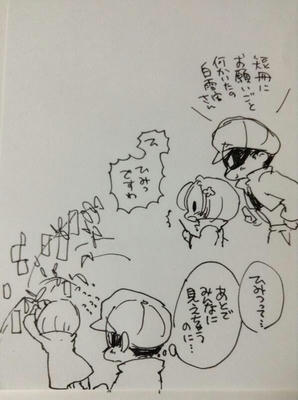 短冊に
お願いごと
何かいたの
白雪宮
さん
ひみつ
ですわ
ひみつって…
あとで
みんなに
見えちゃう
のに…